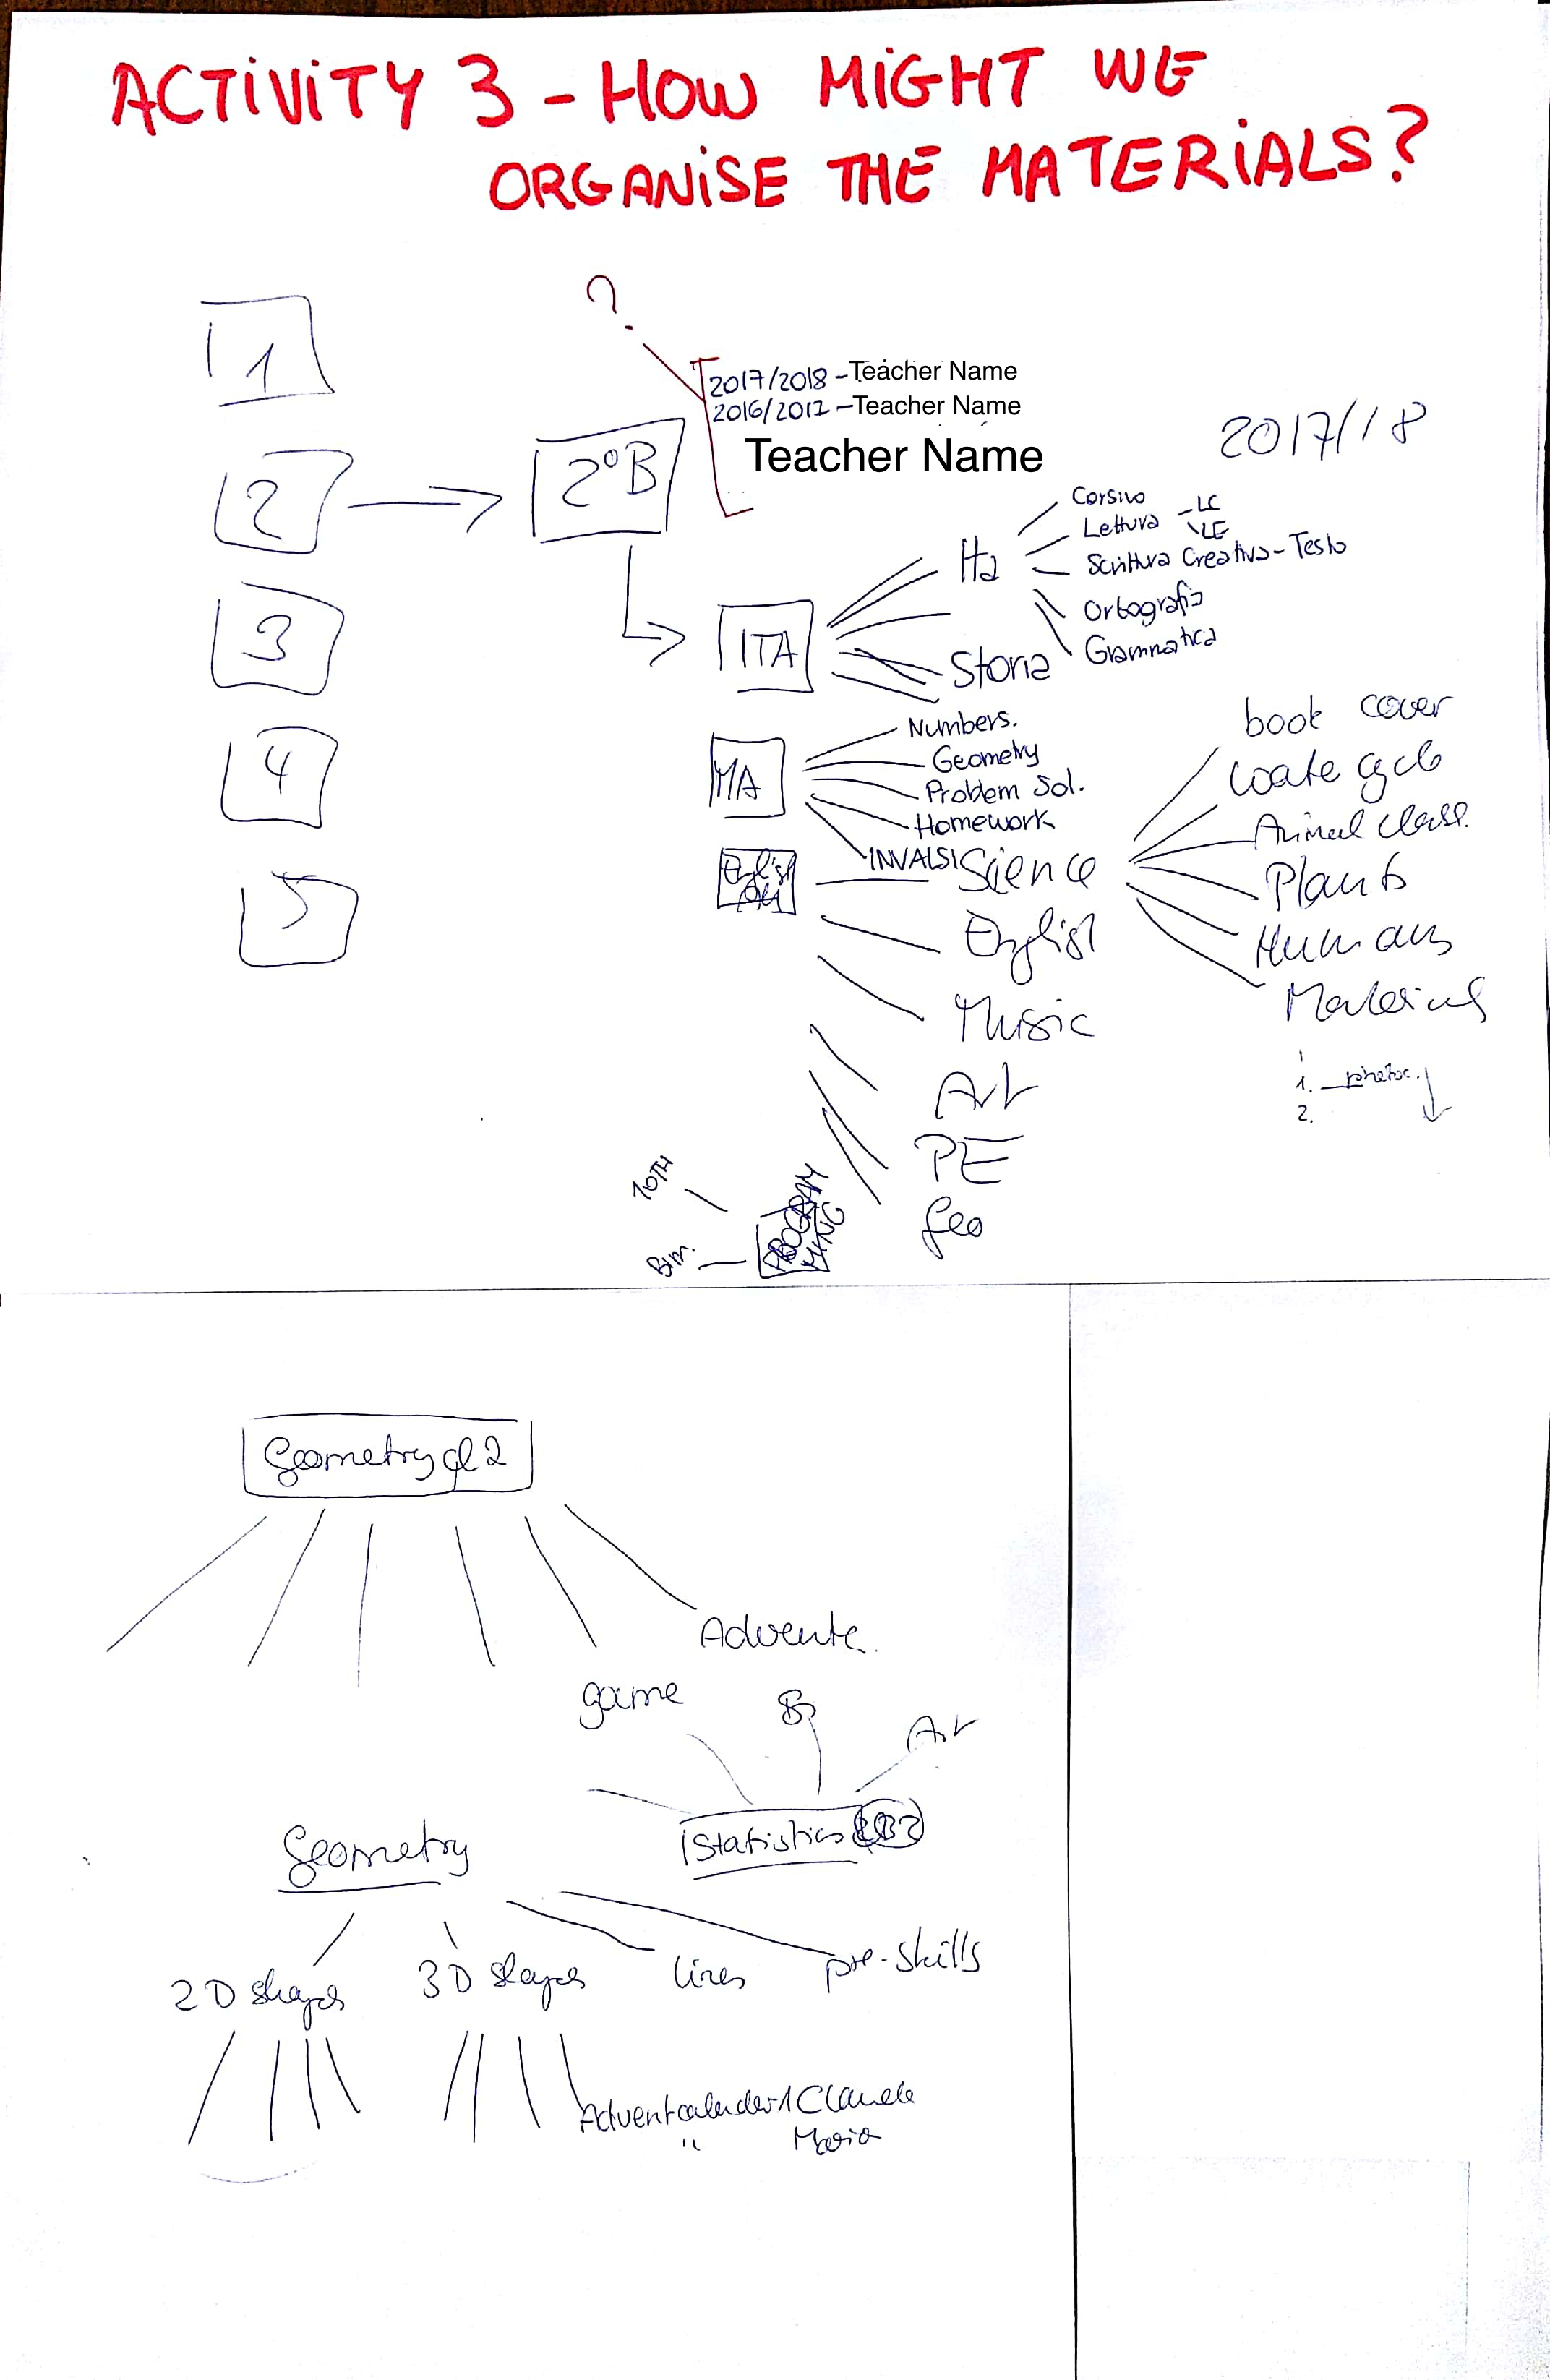 ACTIVITY 3 - HOW MIGHT WE
ORGANISE THE MATERIALS?
?
1
2017/2018 - Teacher Name
2016/2017 - Teacher Name
Teacher Name
2017/18
2
2°B
Corsivo
Lettura - LC
LE
Ita
Scrittura Creativa - Testo
Ortografia
Grammatica
3
ITA
Storia
Numbers.
Geometry
Problem Sol.
Homework
INVALSI
4
MA
book cover
Wate cycle
Animal class.
Plants
Humans
Materials
1. photoc.
2.
English
Science
English
Music
Art
PE
Geo
5
TOTH
Bim.
PROGRAM
MING
Geometry cl 2
Advente.
game
Art
Statistics
Geometry
2D shapes
3D shapes
lines
pre-skills
Advent calendar 1 Claudia
" Maria